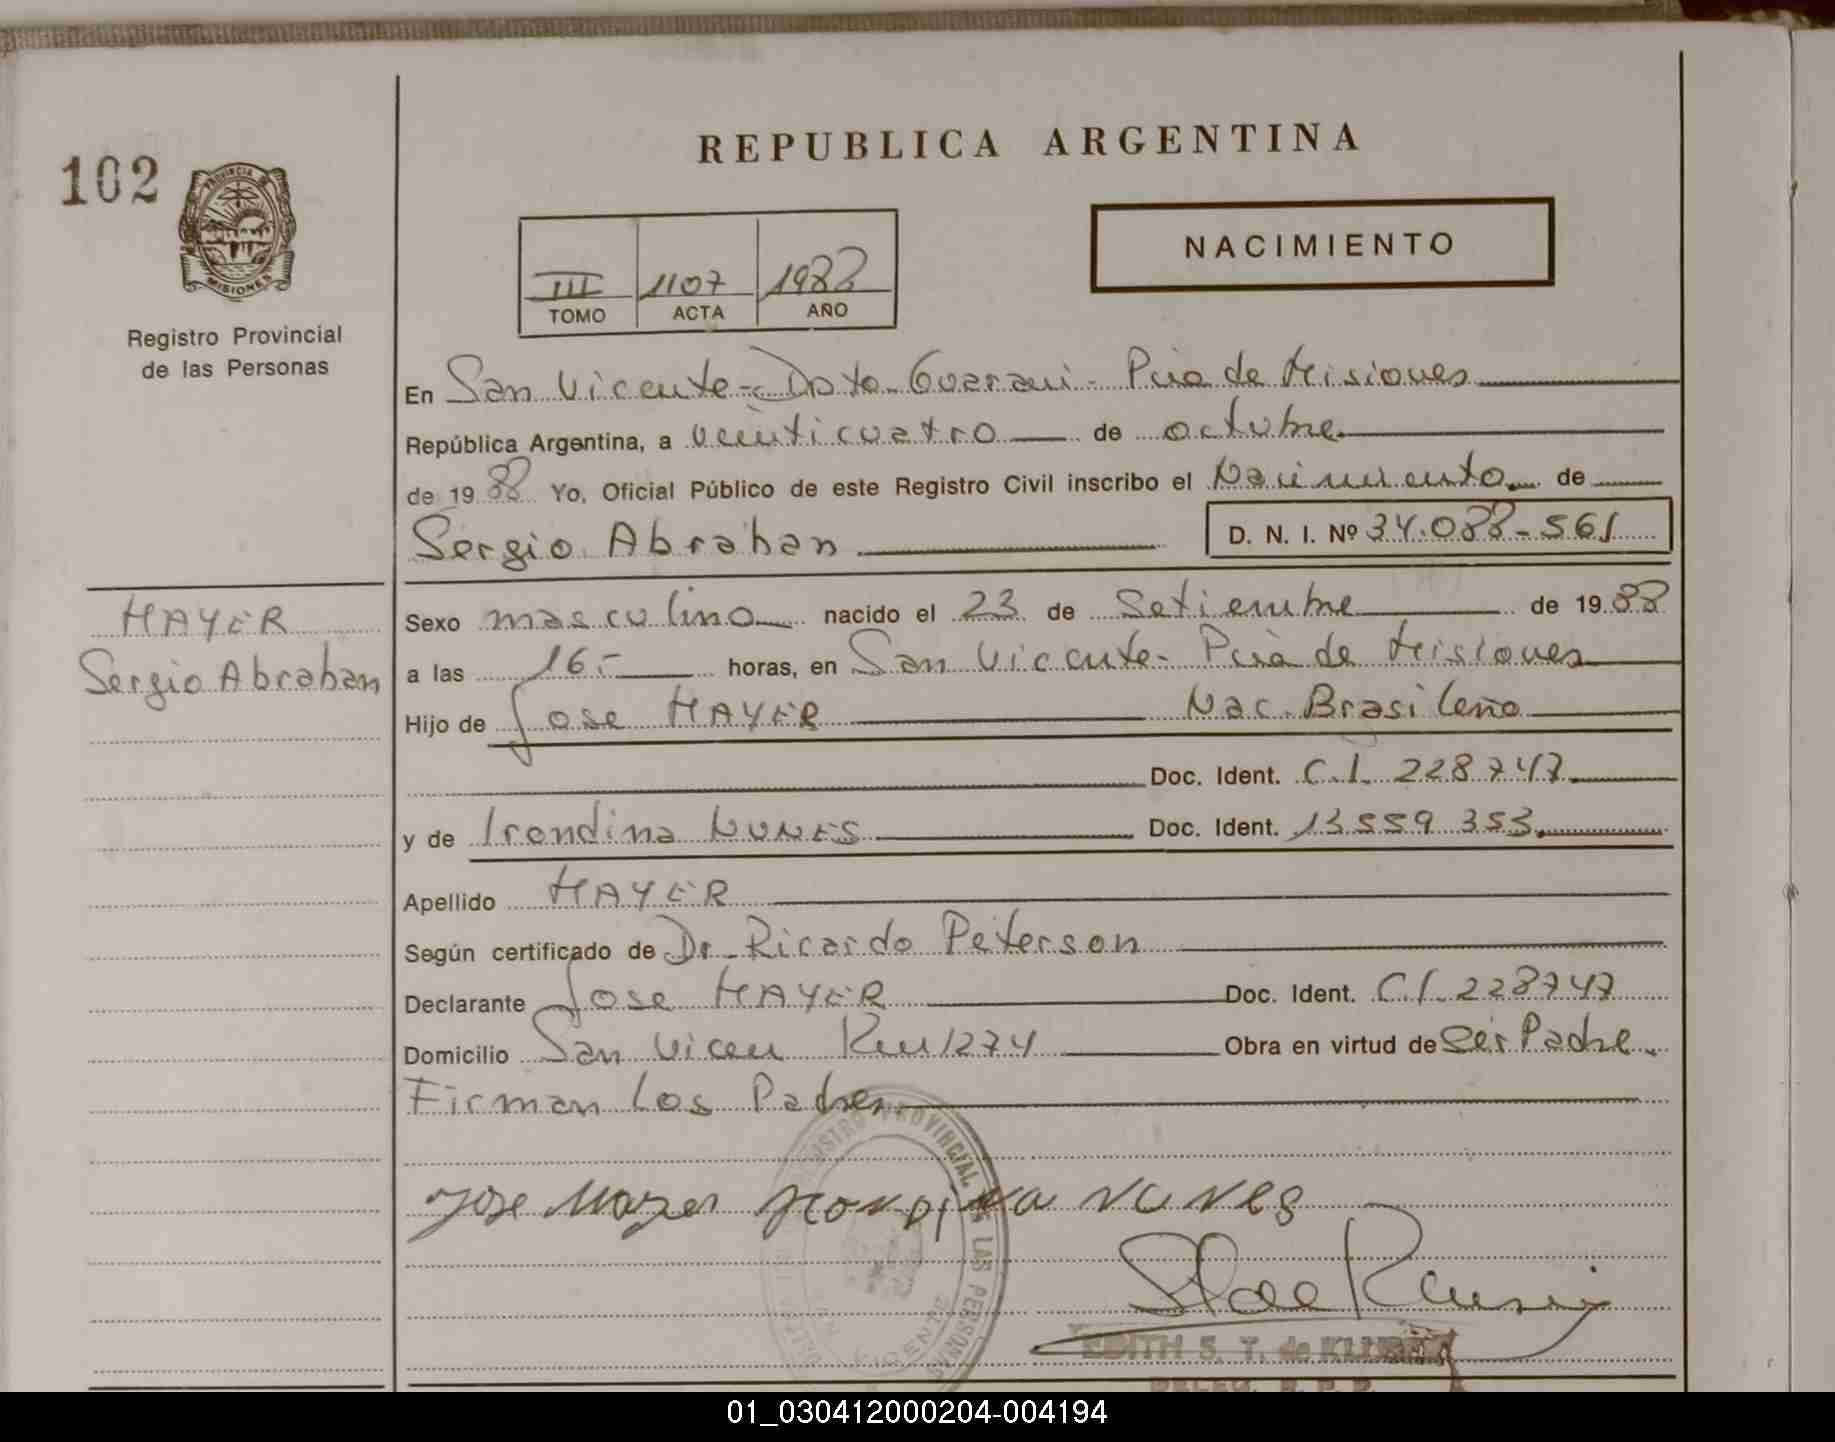 REPUBLICA ARGENTINA
102
PROVINCIA DE
MISIONES
Registro Provincial
de las Personas
NACIMIENTO
III 1107 1988
TOMO ACTA AÑO
En San Vicente - Dpto. Guarani - Pcia de Misiones
República Argentina, a veinticuatro de octubre
de 1988 Yo, Oficial Público de este Registro Civil inscribo el Nacimiento de
Sergio Abrahan D. N. I. Nº 34.088-561
HAYER
Sergio Abrahan
Sexo masculino nacido el 23 de Setiembre de 1988
a las 16.- horas, en San Vicente - Pcia de Misiones
Hijo de Jose HAYER Nac. Brasileña
Doc. Ident. C.I. 228747
y de Irondina NUNES Doc. Ident. 13559353
Apellido HAYER
Según certificado de Dr. Ricardo Peterson
Declarante Jose HAYER Doc. Ident. C.I. 228747
Domicilio San Vicen Km 1274 Obra en virtud de Ser Padre.
Firman Los Padres
Jose Mayer Irondina NUNES
PROVINCIAL DE LAS PERSONAS
VICENTE
EDITH S. T. de
01_030412000204-004194